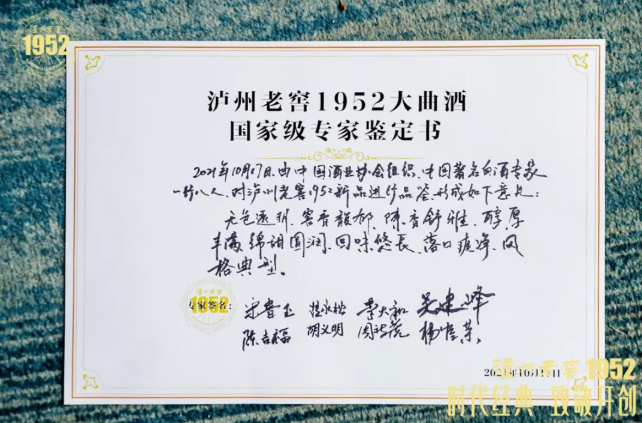 1952
泸州老窖1952大曲酒
国家级专家鉴定书
2021年10月17日,由中国酒业协会组织,中国著名白酒专家
一行八人,对泸州老窖1952新品进行品鉴,形成如下意见:
无色透明、窖香馥郁、陈香舒雅、醇厚
丰满、绵甜圆润、回味悠长、落口爽净、风
格典型。
1952
专家签名:
李大和
吴建峰
陈吉福
胡义明
杨官荣
10月
日
泸州老窖1952
时代经典 致敬开创